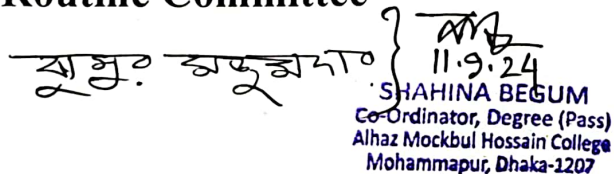 Routine Committee
ঝুমুর মজুমদার
11.9.24
SHAHINA BEGUM
Co-Ordinator, Degree (Pass)
Alhaz Mockbul Hossain College
Mohammapur, Dhaka-1207